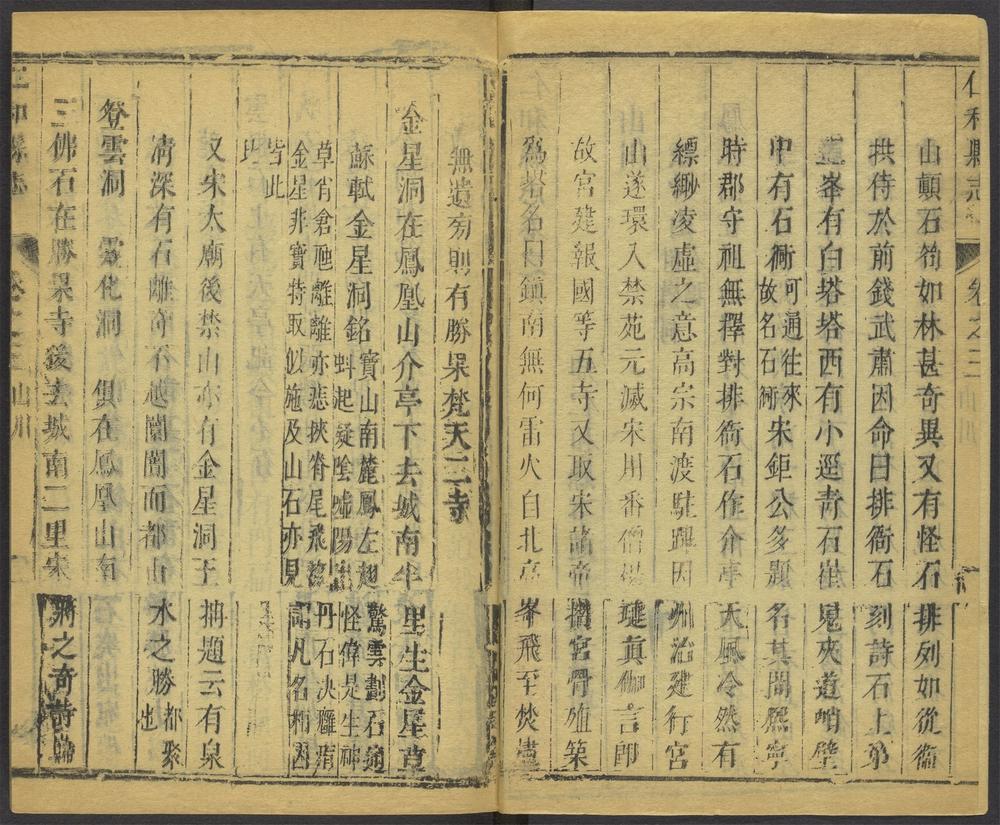 仁和縣志 卷之二 山川
山顛石筍如林甚奇異又有怪石排列如從衞
拱侍於前錢武肅因命曰排衙石刻詩石上第
三峯有白塔塔西有小逕靑石崖晃夾道峭壁
中有石衖可通往來故名石衖宋鉅公多題名其間熙寧
時郡守祖無擇對排衙石作介亭天風冷然有
縹緲淩虛之意高宗南渡駐蹕因州治建行宮
山遂環入禁苑元滅宋用番僧楊璉眞伽言卽
故宮建報國等五寺又取宋諸帝欑宮骨殖築
爲塔名曰鎭南無何雷火自北高峯飛至焚燬
無遺旁則有勝果梵天二寺
金星洞在鳳凰山介亭下去城南半里生金星草
蘇軾金星洞銘寶山南麓鳳左翅驚雲劃石逈
蚪起疑陰墟陽怪偉是生神
草肖倉虺離離亦悲挾脊尾飛丹石決癰
金星非寶特取似施及山石亦見謂凡名相因
皆此
又宋太廟後禁山亦有金星洞王
題云有泉
淸深有石離奇不越闤闠而都山水之勝都聚也
登雲洞 雲化洞 俱在鳳凰山南
三佛石在勝果寺後去城南二里宋蔣之奇詩
仁和縣志 卷之二 山川